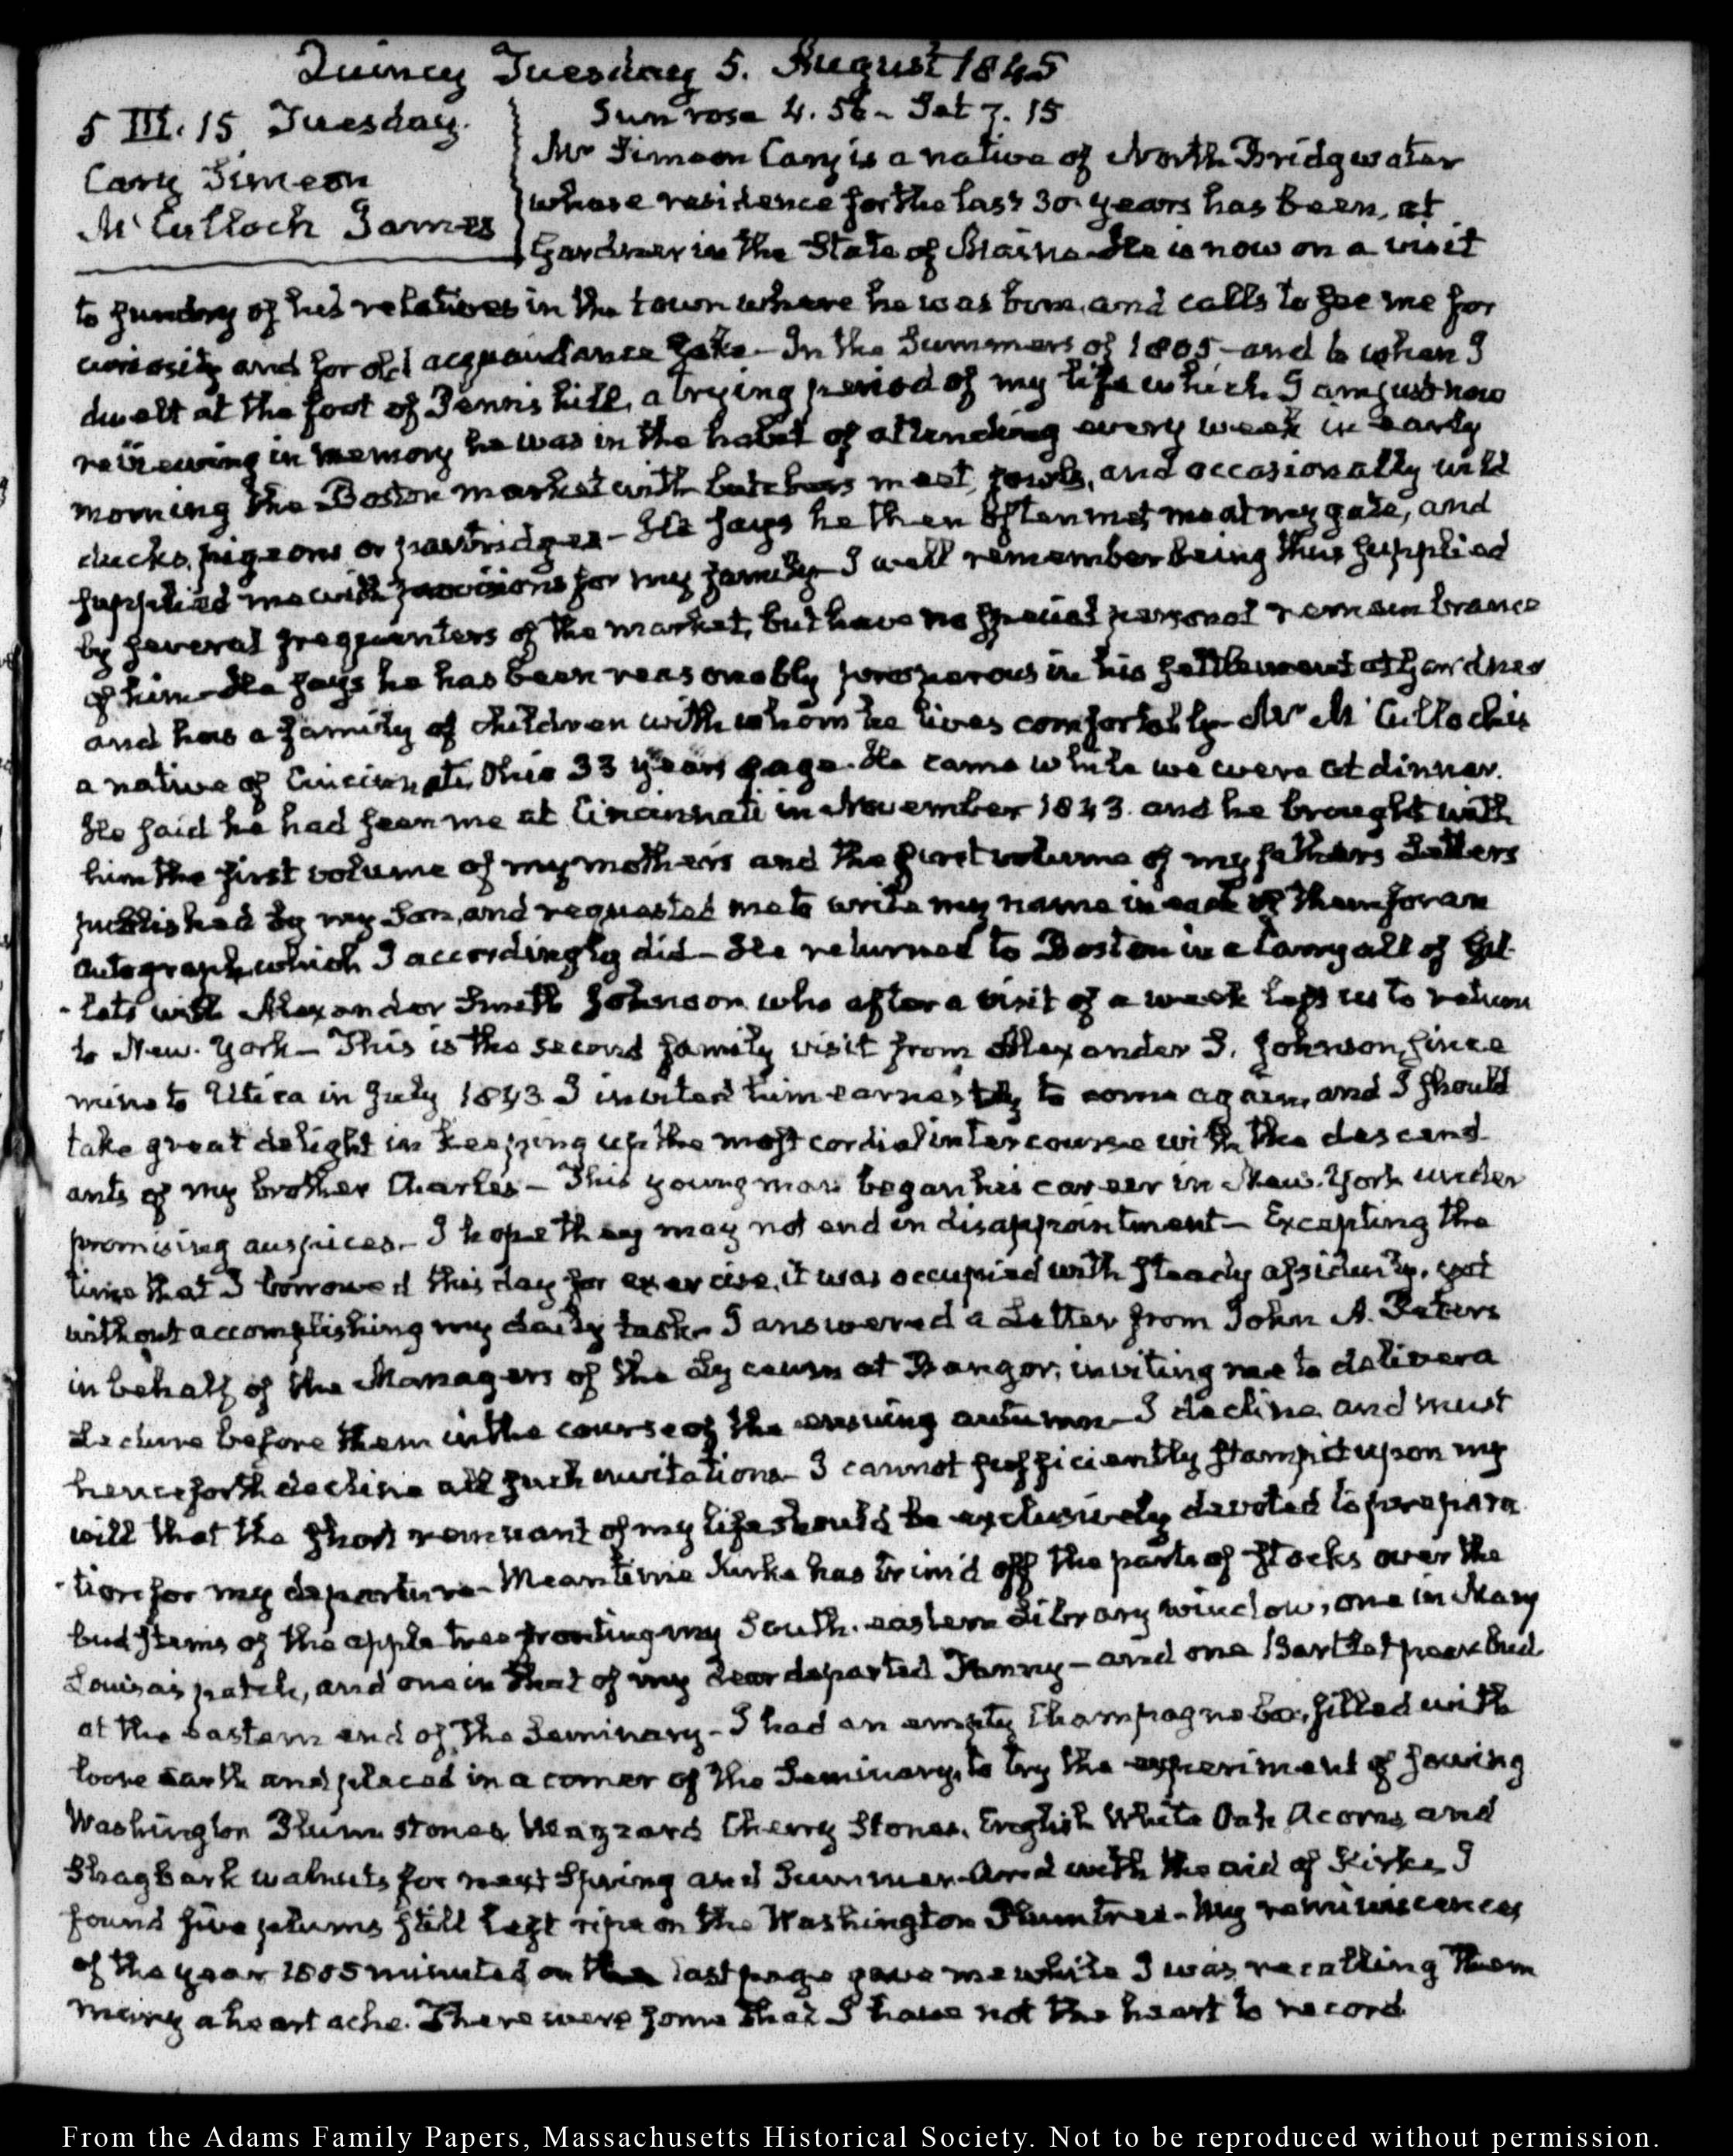 Quincy Tuesday 5. August 1845
5 III. 15 Tuesday.
Cary Simeon
McCulloch James
Sun rose 4. 56 - Set 7. 15
Mr Simeon Cary is a native of North Bridgwater
whose residence for the last 30 years has been, at
Gardner in the State of Maine. He is now on a visit
to sundry of his relatives in the town where he was born, and calls to see me for
curiosity and for old acquaintance sake - In the Summers of 1805 - and 6 when I
dwelt at the foot of Penns hill, a trying period of my life which I am just now
reviewing in memory he was in the habit of attending every week in early
morning the Boston market with butchers meat, fowls, and occasionally wild
ducks, pigeons or partridges - He says he then often met me at my gate, and
supplied me with provisions for my family - I well remember being thus supplied
by several frequenters of the market, but have no special personal remembrance
of him - He says he has been reasonably prosperous in his settlement at Gardner
and has a family of children with whom he lives comfortably - Mr McCulloch is
a native of Cincinnati, Ohio 33 years of age. He came while we were at dinner.
He said he had seen me at Cincinnati in November 1843. and he brought with
him the first volume of my mothers and the first volume of my fathers Letters
published by my Son, and requested me to write my name in each of them for an
autograph, which I accordingly did - He returned to Boston in a Carryall of Gil-
-lets with Alexander Smith Johnson who after a visit of a week left us to return
to New-York - This is the second family visit from Alexander S. Johnson, since
mine to Utica in July 1843 I invited him earnestly to come again, and I should
take great delight in keeping up the most cordial intercourse with the descend-
ants of my brother Charles - This young man began his career in New-York under
promising auspices - I hope they may not end in disappointment - Excepting the
time that I borrowed this day for exercise, it was occupied with steady assiduity, yet
without accomplishing my daily task - I answered a Letter from John A. Peters
in behalf of the Managers of the Lyceum at Bangor, inviting me to deliver a
Lecture before them in the course of the ensuing autumn - I decline and must
henceforth decline all such invitations - I cannot sufficiently stamp it upon my
will that the short remnant of my life should be exclusively devoted to prepara
-tion for my departure - Meantime Kirke has trim'd off the parts of stocks over the
bud stems of the apple tree fronting my South-eastern Library window, one in Mary
Louisa's patch, and one in that of my dear departed Fanny - and one Bartlet pear bud
at the eastern end of the Seminary - I had an empty Champagne box, filled with
loose earth and placed in a corner of the Seminary, to try the experiment of sowing
Washington Plum stones, Mazzard Cherry Stones, English White Oak Acorns, and
Shagbark walnuts for next Spring and Summer - And with the aid of Kirke, I
found five plums still left ripe on the Washington Plumtree - My reminiscences
of the year 1805 minuted on the last page gave me while I was recalling them
many a heart ache. There were some that I have not the heart to record
From the Adams Family Papers, Massachusetts Historical Society. Not to be reproduced without permission.